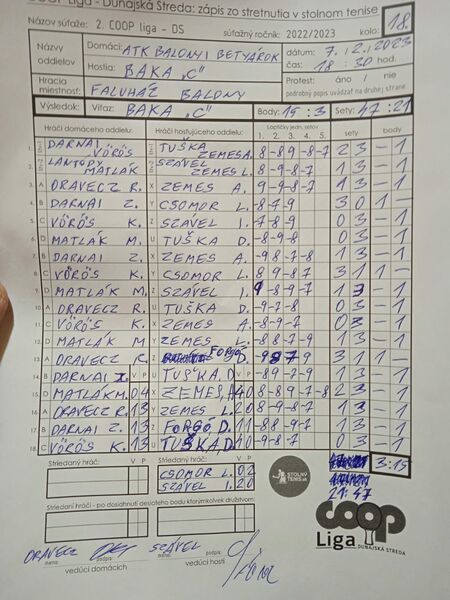 COOP Liga - Dunajská Streda: zápis zo stretnutia v stolnom tenise
Názov súťaže: 2. COOP liga - DS súťažný ročník: 2022/2023 kolo: 18.
Názvy oddielov Domáci: ATK BALONYI BETYÁROK dátum: 7.12.2023
Hostia: BAKA "C" čas: 18 30 hod.
Hracia miestnosť: FALUHÁZ BALONY Protest: áno / nie
podrobný popis uvádzať na druhej strane
Výsledok: Víťaz: BAKA "C" Body: 15 : 3 Sety: 47 : 21
Hráči domáceho oddielu: Hráči hosťujúceho oddielu: Loptičky jedn. setov sety body
1. 2. 3. 4. 5.
1. DARNAI VÖRÖS TUŠKA ZEMES A. 8 -8 9 -8 -7 2 3 - 1
2. LANTODY MATLÁK SZÁVEL ZEMES L. 1 3 - 1
3. A ORAVECZ R. X ZEMES A. 9 -9 -8 -7 1 3 - 1
4. B DARNAI Z. Y CSOMOR L. -8 -7 -9 3 0 1 -
5. C VÖRÖS K. Z SZÁVEL I. -7 -8 9 0 3 - 1
6. D MATLÁK M. U TUŠKA D. -8 -9 -8 0 3 - 1
7. B DARNAI Z. X ZEMES A. 1 3 - 1
8. C VÖRÖS K. Y CSOMOR L. 8 9 -8 7 3 1 1 -
9. D MATLÁK M. Z SZÁVEL I. 1 3 - 1
10. A ORAVECZ R. U TUŠKA D. -9 -7 -8 0 3 - 1
11. C VÖRÖS K. X ZEMES A. -8 -9 -7 0 3 - 1
12. D MATLÁK M Y ZEMES L. -8 8 -7 -9 1 3 - 1
13. A ORAVECZ R. Z FORGÓ D. 3 1 1 -
14. B DARNAI Z. U TUŠKA D. 1 3 - 1
15. D MATLÁK M. 0 4 X ZEMES A. 4 0 8 -8 9 -7 -8 2 3 - 1
16. A ORAVECZ R. 1 3 Y ZEMES L. 2 0 8 -9 -8 -7 1 3 - 1
17. B DARNAI Z. 1 3 Z FORGÓ D. 1 1 -8 8 -9 -7 1 3 - 1
18. C VÖRÖS K. 1 3 U TUŠKA D. 4 0 -9 -8 -7 0 3 - 1
Striedaný hráč: V P Striedaný hráč: V P 3:15
CSOMOR L. 0 2
SZÁVEL I. 2 0
STOLNÝ TENIS.sk
21:47
Striedaní hráči - po dosiahnutí desiateho bodu ktorýmkoľvek družstvom:
coop
Liga DUNAJSKÁ STREDA
ORAVECZ SZÁVEL
meno: podpis: meno: podpis:
vedúci domácich vedúci hostí